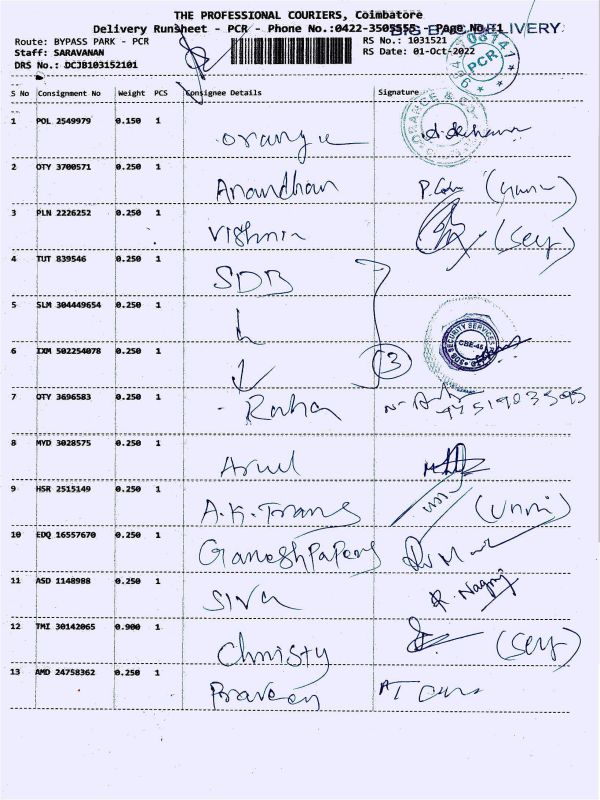 THE PROFESSIONAL COURIERS, Coimbatore
Delivery Runsheet - PCR - Phone No.:0422-3505555 - Page No.:1
DELIVERY
Route: BYPASS PARK - PCR
Staff: SARAVANAN
DRS No.: DCJB103152101
RS No.: 1031521
RS Date: 01-Oct-2022
PCR
S No Consignment No Weight PCS Consignee Details Signature
1 POL 2549979 0.150 1 orange
2 OTY 3700571 0.250 1 Anandhan
3 PLN 2226252 0.250 1 (self)
4 TUT 839546 0.250 1 SDB
5 SLM 304449654 0.250 1
SECURITY SERVICES
CBE-45
6 IXM 502254078 0.250 1 3
7 OTY 3696583 0.250 1
8 MYD 3028575 0.250 1 Arul
9 HSR 2515149 0.250 1 A.K. Trans (Unni)
10 EDQ 16557670 0.250 1 Ganesh Papers
11 ASD 1148988 0.250 1 Siva
12 TMI 30142065 0.900 1 Christy (self)
13 AMD 24758362 0.250 1 Praveen